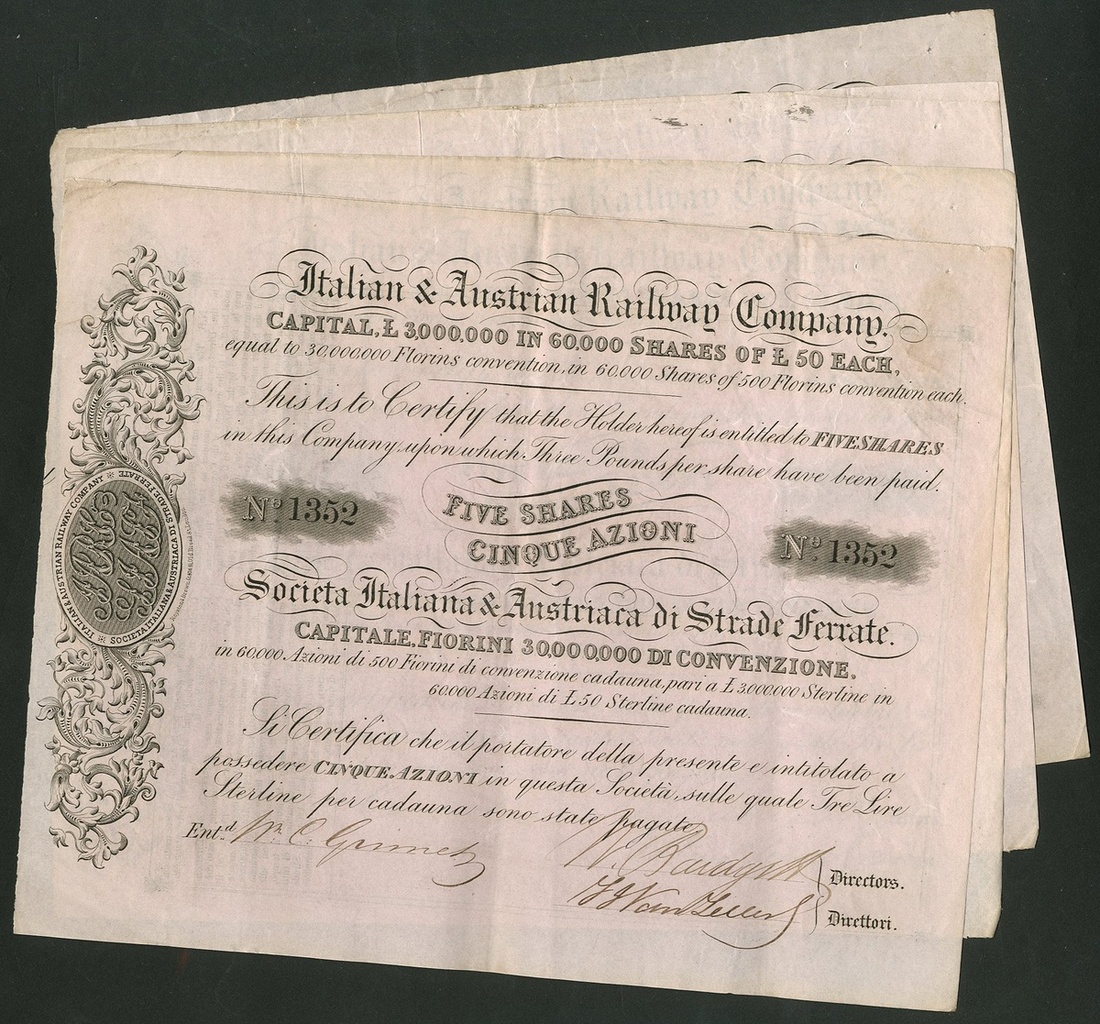 Italian & Austrian Railway Company.
CAPITAL, £ 3,000,000 IN 60,000 SHARES OF £ 50 EACH,
equal to 30,000,000 Florins convention, in 60,000 Shares of 500 Florins convention each.
This is to Certify that the Holder hereof is entitled to FIVE SHARES
in this Company, upon which Three Pounds per share have been paid.
FIVE SHARES
CINQUE AZIONI
No. 1352
No. 1352
Societa Italiana & Austriaca di Strade Ferrate.
CAPITALE, FIORINI 30,000,000 DI CONVENZIONE.
in 60,000. Azioni di 500 Fiorini di convenzione cadauna, pari a £3,000,000 Sterline in
60,000 Azioni di £.50 Sterline cadauna.
Si Certifica che il portatore della presente e intitolato a
possedere CINQUE AZIONI in questa Società, sulle quale Tre Lire
Sterline per cadauna sono state pagate
Ent.d Wm. C.
Directors.
Direttori.
ITALIAN & AUSTRIAN RAILWAY COMPANY
SOCIETA ITALIANA & AUSTRIACA DI STRADE FERRATE
Railway Company